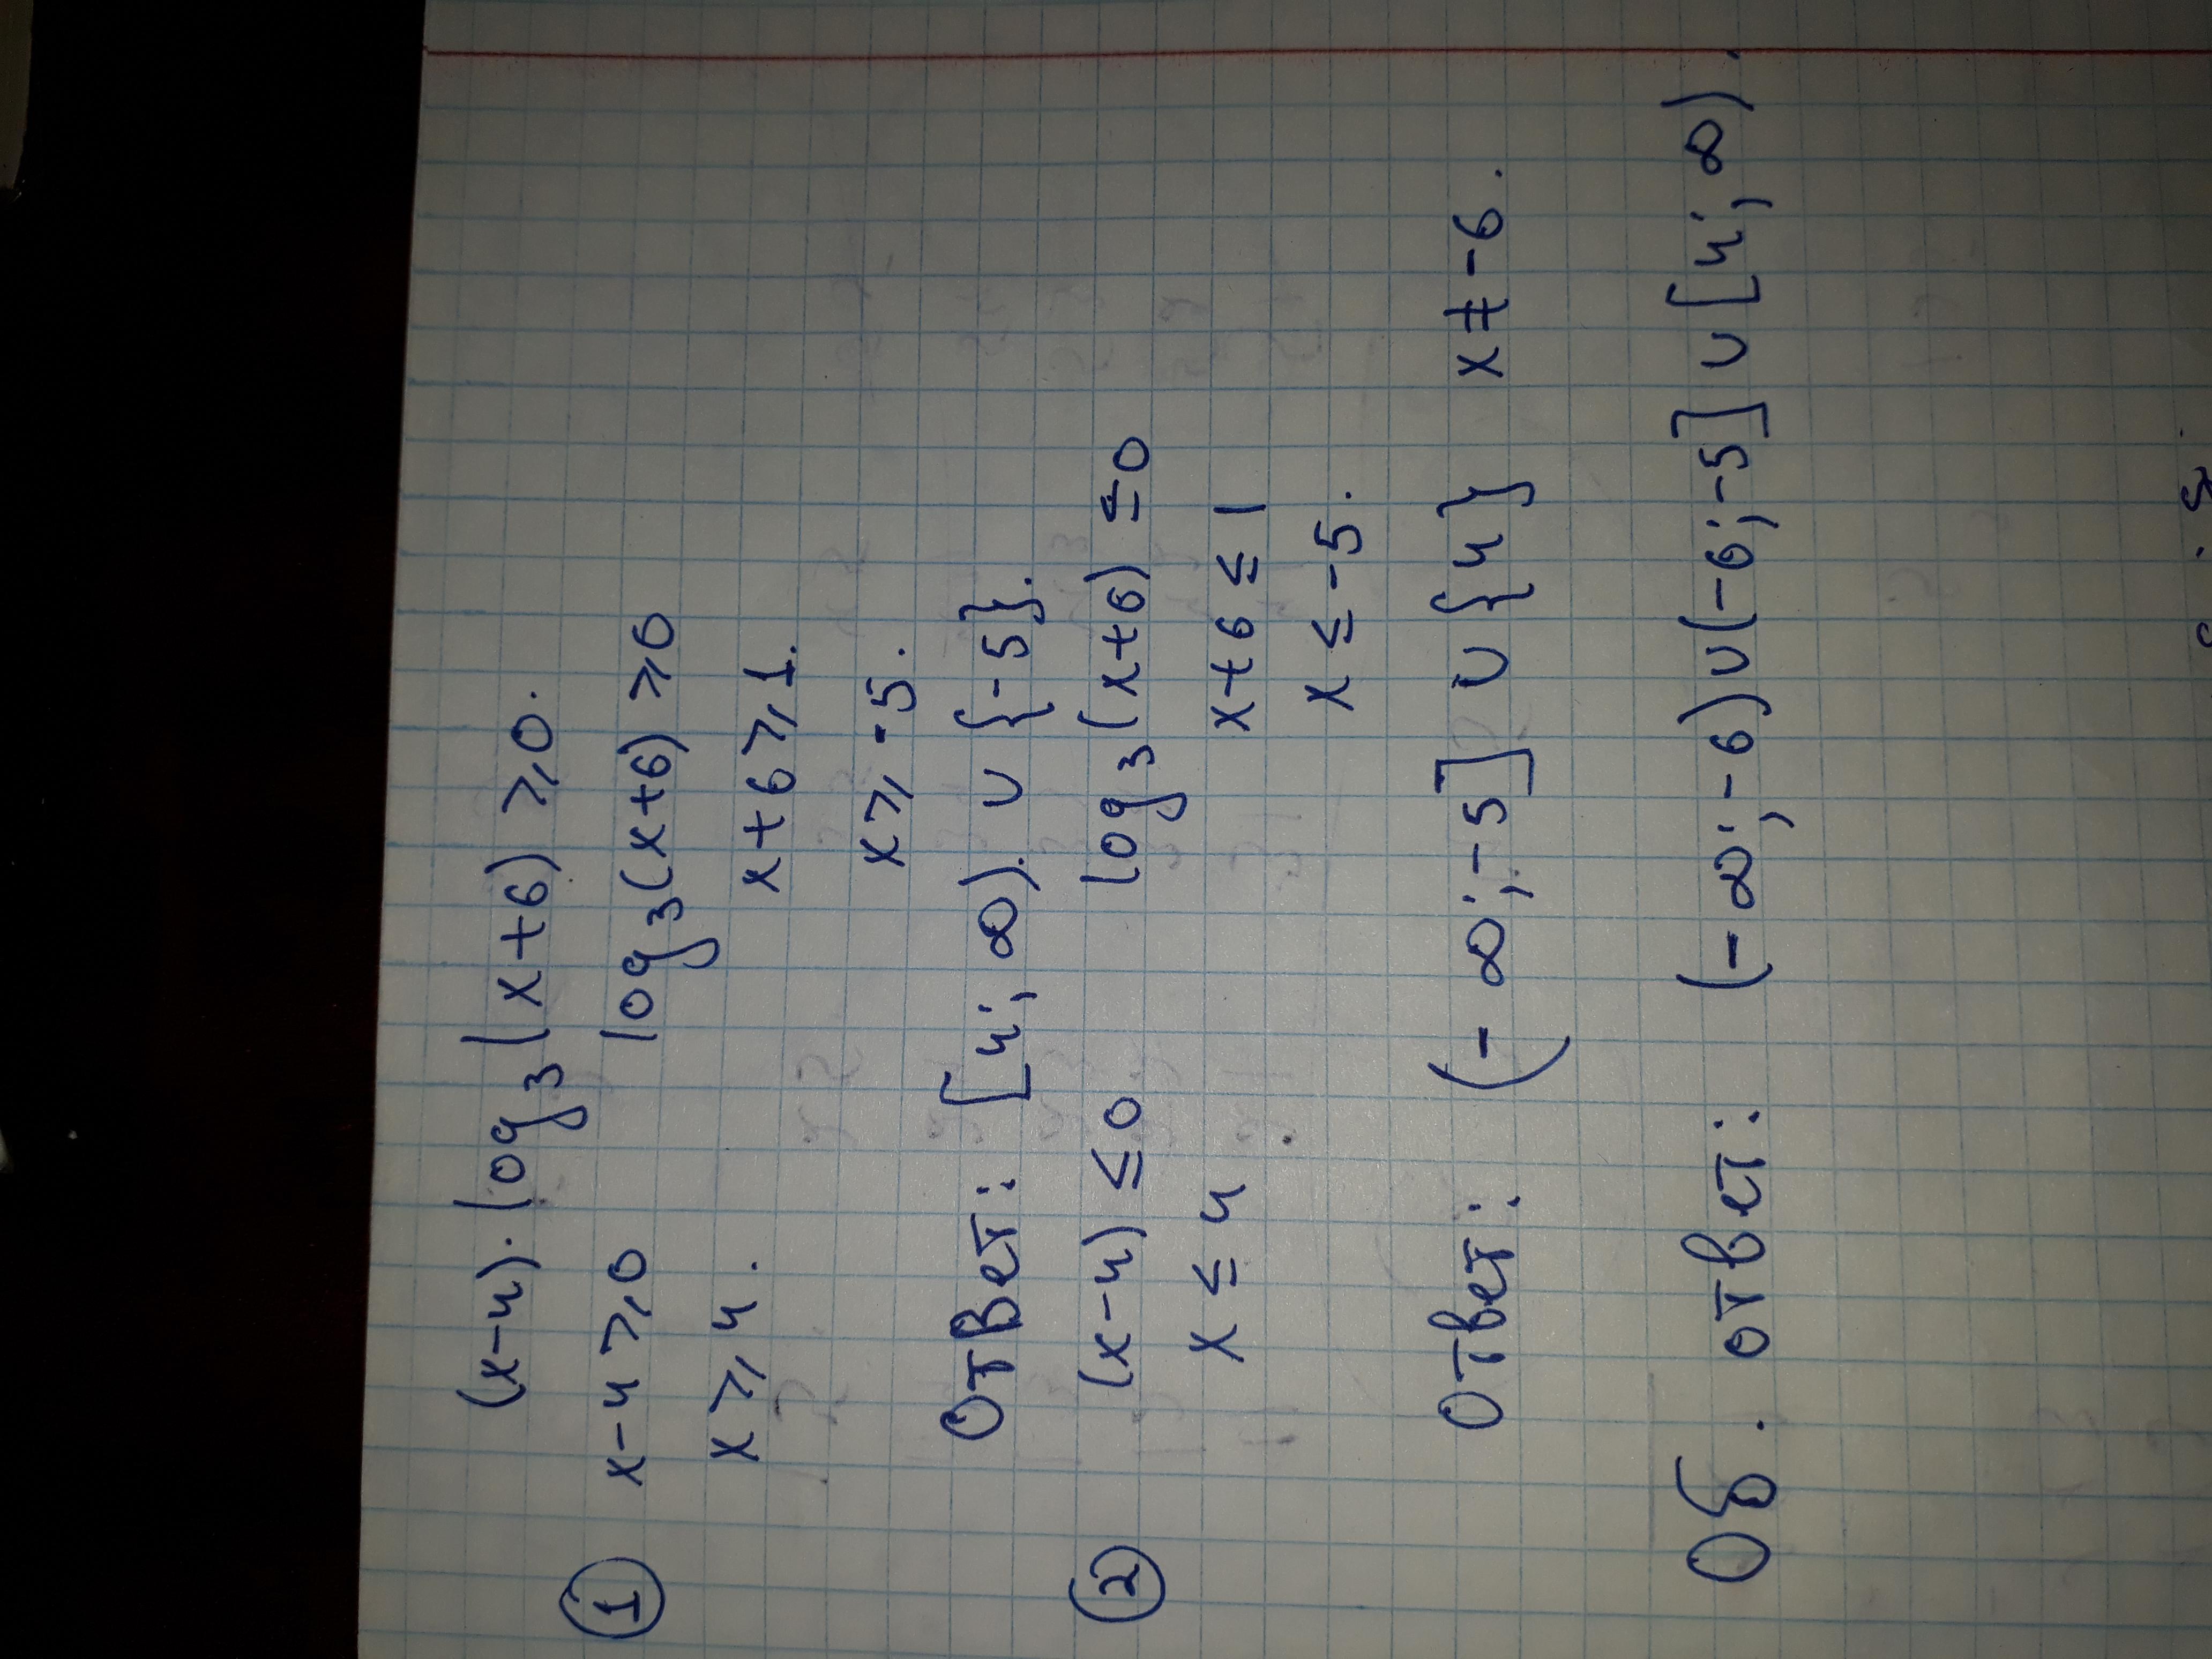 (x-4)·log₃(x+6) ⩾ 0.
① x-4 ⩾ 0 log₃(x+6) ⩾ 0
x ⩾ 4. x+6 ⩾ 1.
x ⩾ -5.
Ответ: [4; ∞). ∪ {-5}.
② (x-4) ≤ 0 log₃(x+6) ≤ 0
x ≤ 4 x+6 ≤ 1
x ≤ -5.
Ответ: (-∞; -5] ∪ {4} x ≠ -6.
Об. ответ: (-∞; -6) ∪ (-6; -5] ∪ [4; ∞).